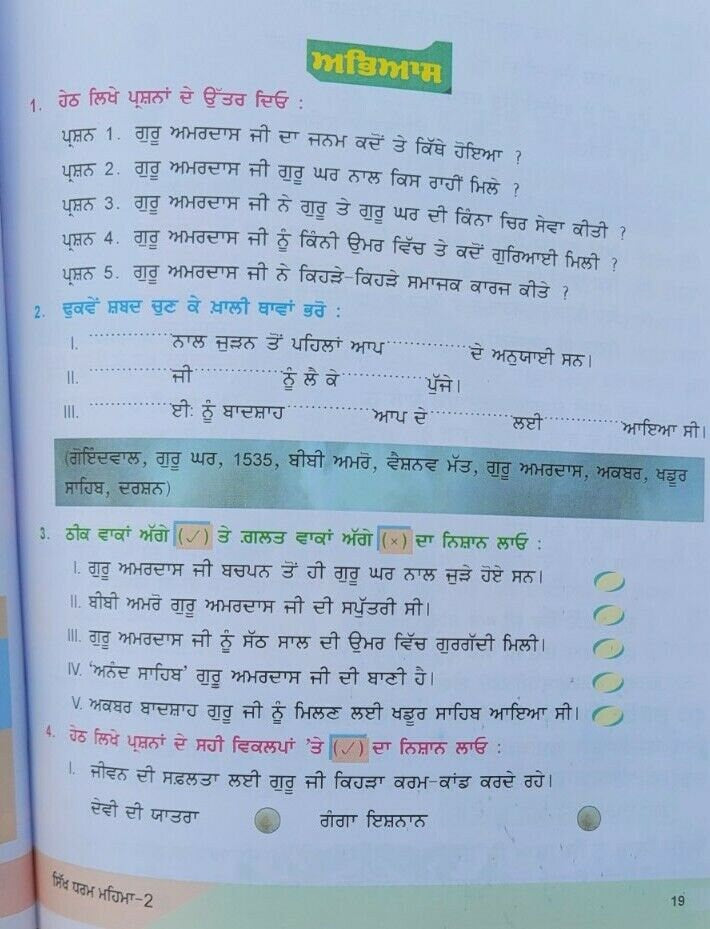 ਅਭਿਆਸ
1. ਹੇਠ ਲਿਖੇ ਪ੍ਰਸ਼ਨਾਂ ਦੇ ਉੱਤਰ ਦਿਓ :
ਪ੍ਰਸ਼ਨ 1. ਗੁਰੂ ਅਮਰਦਾਸ ਜੀ ਦਾ ਜਨਮ ਕਦੋਂ ਤੇ ਕਿੱਥੇ ਹੋਇਆ ?
ਪ੍ਰਸ਼ਨ 2. ਗੁਰੂ ਅਮਰਦਾਸ ਜੀ ਗੁਰੂ ਘਰ ਨਾਲ ਕਿਸ ਰਾਹੀਂ ਮਿਲੇ ?
ਪ੍ਰਸ਼ਨ 3. ਗੁਰੂ ਅਮਰਦਾਸ ਜੀ ਨੇ ਗੁਰੂ ਤੇ ਗੁਰੂ ਘਰ ਦੀ ਕਿੰਨਾ ਚਿਰ ਸੇਵਾ ਕੀਤੀ ?
ਪ੍ਰਸ਼ਨ 4. ਗੁਰੂ ਅਮਰਦਾਸ ਜੀ ਨੂੰ ਕਿੰਨੀ ਉਮਰ ਵਿੱਚ ਤੇ ਕਦੋਂ ਗੁਰਿਆਈ ਮਿਲੀ ?
ਪ੍ਰਸ਼ਨ 5. ਗੁਰੂ ਅਮਰਦਾਸ ਜੀ ਨੇ ਕਿਹੜੇ-ਕਿਹੜੇ ਸਮਾਜਕ ਕਾਰਜ ਕੀਤੇ ?
2. ਢੁਕਵੇਂ ਸ਼ਬਦ ਚੁਣ ਕੇ ਖ਼ਾਲੀ ਥਾਵਾਂ ਭਰੋ :
I. ............... ਨਾਲ ਜੁੜਨ ਤੋਂ ਪਹਿਲਾਂ ਆਪ ............... ਦੇ ਅਨੁਯਾਈ ਸਨ।
II. ............... ਜੀ ............... ਨੂੰ ਲੈ ਕੇ ............... ਪੁੱਜੇ।
III. ............... ਈ: ਨੂੰ ਬਾਦਸ਼ਾਹ ............... ਆਪ ਦੇ ............... ਲਈ ............... ਆਇਆ ਸੀ।
(ਗੋਇੰਦਵਾਲ, ਗੁਰੂ ਘਰ, 1535, ਬੀਬੀ ਅਮਰੋ, ਵੈਸ਼ਨਵ ਮੱਤ, ਗੁਰੂ ਅਮਰਦਾਸ, ਅਕਬਰ, ਖਡੂਰ
ਸਾਹਿਬ, ਦਰਸ਼ਨ)
3. ਠੀਕ ਵਾਕਾਂ ਅੱਗੇ (✓) ਤੇ ਗ਼ਲਤ ਵਾਕਾਂ ਅੱਗੇ (×) ਦਾ ਨਿਸ਼ਾਨ ਲਾਓ :
I. ਗੁਰੂ ਅਮਰਦਾਸ ਜੀ ਬਚਪਨ ਤੋਂ ਹੀ ਗੁਰੂ ਘਰ ਨਾਲ ਜੁੜੇ ਹੋਏ ਸਨ।
II. ਬੀਬੀ ਅਮਰੋ ਗੁਰੂ ਅਮਰਦਾਸ ਜੀ ਦੀ ਸਪੁੱਤਰੀ ਸੀ।
III. ਗੁਰੂ ਅਮਰਦਾਸ ਜੀ ਨੂੰ ਸੱਠ ਸਾਲ ਦੀ ਉਮਰ ਵਿੱਚ ਗੁਰਗੱਦੀ ਮਿਲੀ।
IV. 'ਅਨੰਦ ਸਾਹਿਬ' ਗੁਰੂ ਅਮਰਦਾਸ ਜੀ ਦੀ ਬਾਣੀ ਹੈ।
V. ਅਕਬਰ ਬਾਦਸ਼ਾਹ ਗੁਰੂ ਜੀ ਨੂੰ ਮਿਲਣ ਲਈ ਖਡੂਰ ਸਾਹਿਬ ਆਇਆ ਸੀ।
4. ਹੇਠ ਲਿਖੇ ਪ੍ਰਸ਼ਨਾਂ ਦੇ ਸਹੀ ਵਿਕਲਪਾਂ 'ਤੇ (✓) ਦਾ ਨਿਸ਼ਾਨ ਲਾਓ :
I. ਜੀਵਨ ਦੀ ਸਫ਼ਲਤਾ ਲਈ ਗੁਰੂ ਜੀ ਕਿਹੜਾ ਕਰਮ-ਕਾਂਡ ਕਰਦੇ ਰਹੇ।
ਦੇਵੀ ਦੀ ਯਾਤਰਾ ਗੰਗਾ ਇਸ਼ਨਾਨ
ਸਿੱਖ ਧਰਮ ਮਹਿਮਾ-2 19